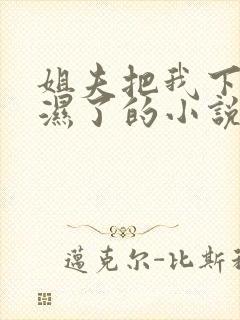 姐夫把我下
濕了的小說
邁克尔-比斯利